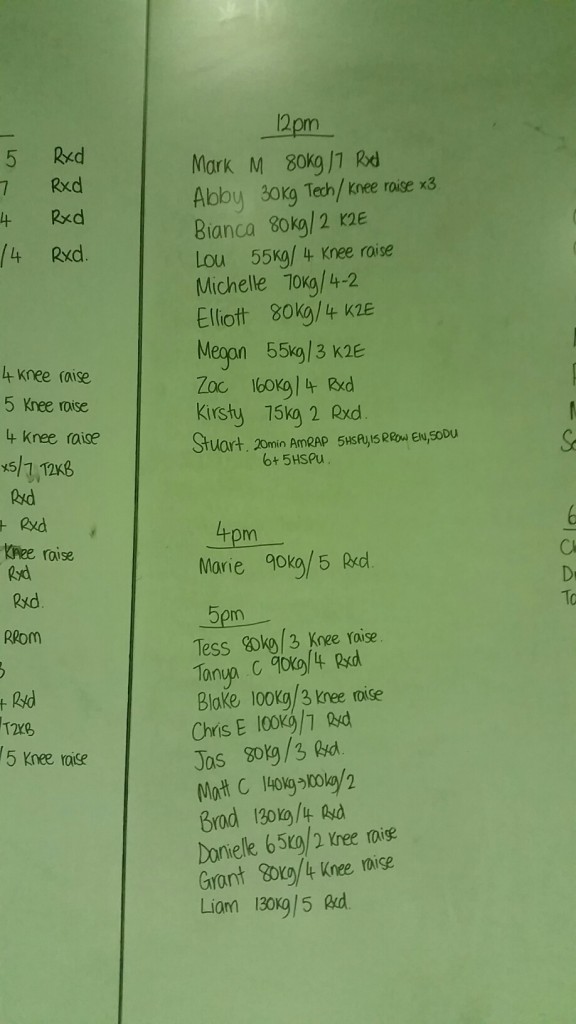 5 Rxd
7 Rxd
4 Rxd
/4 Rxd.
4 Knee raise
5 Knee raise
4 Knee raise
x5/7 T2KB
Rxd
+ Rxd
Knee raise
Rxd
Rxd.
RROM
+ Rxd
/T2KB
/5 Knee raise
12pm
Mark M 80kg/7 Rxd
Abby 30kg Tech/Knee raise x3
Bianca 80kg/2 K2E
Lou 55kg/4 Knee raise
Michelle 70kg/4-2
Elliott 80kg/4 K2E
Megan 55kg/3 K2E
Zac 160kg/4 Rxd
Kirsty 75kg 2 Rxd.
Stuart. 20min AMRAP 5HSPU,15 RRow EN,50DU
6+5HSPU.
4pm
Marie 90kg/5 Rxd.
5pm
Tess 80kg/3 Knee raise.
Tanya C 90kg/4 Rxd
Blake 100kg/3 Knee raise
Chris E 100kg/7 Rxd
Jas 80kg/3 Rxd.
Matt C 140kg→100kg/2
Brad 130kg/4 Rxd
Danielle 65kg/2 Knee raise
Grant 80kg/4 Knee raise
Liam 130kg/5 Rxd.